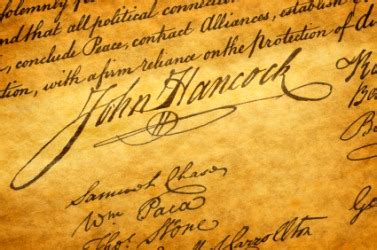 Solemnly p
nd that all political connect
conclude Peace, contract Alliances, establish
tion, with a firm reliance on the protection of di
John Hancock
Samuel Chase
Wm Paca
Thos Stone
Carrollton